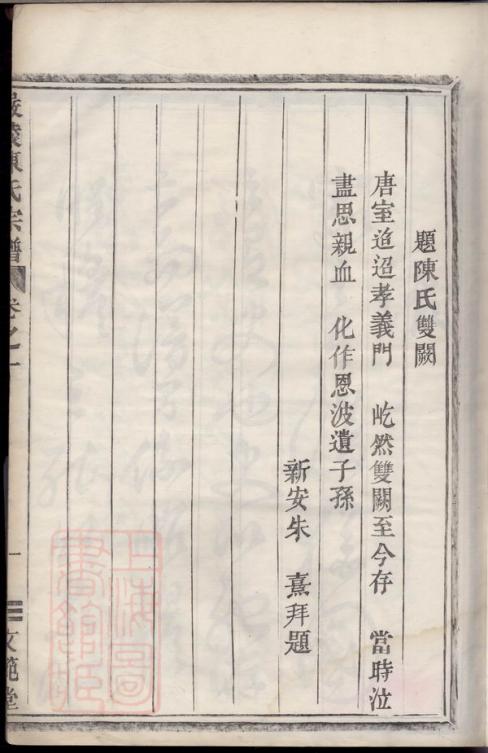 題陳氏雙闕
唐室迨迢孝義門 屹然雙闕至今存 當時泣
盡思親血 化作恩波遺子孫
新安朱 熹拜題
陳氏宗譜 卷之一 一 文範堂
上海圖
書館藏